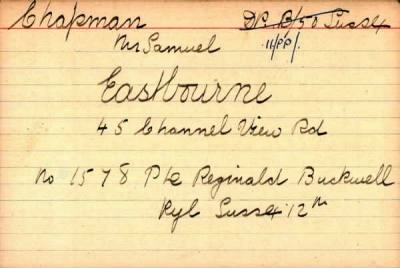 Chapman DR B/50 Sussex
Mr Samuel 11/PP/.
Eastbourne
45 Channel View Rd
No 1578 Pte Reginald Buckwell
Ryl Sussex 12th